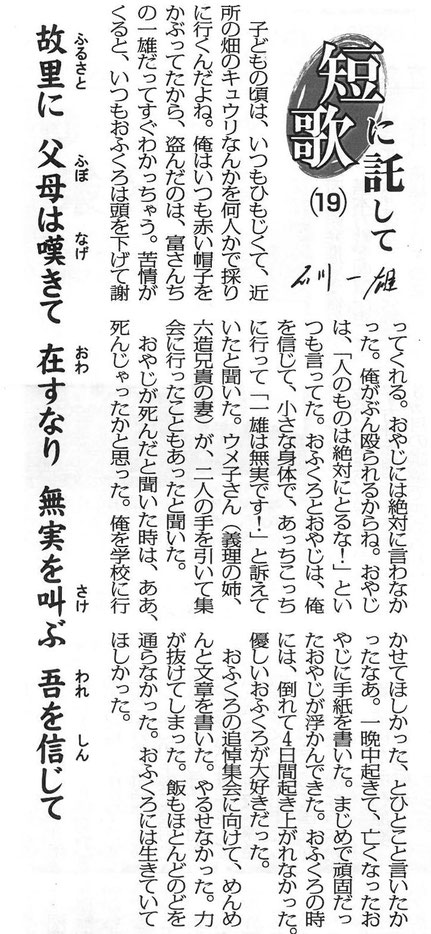 短歌に託して
(19)
石川一雄
子どもの頃は、いつもひもじくて、近
所の畑のキュウリなんかを何人かで採り
に行くんだよね。俺はいつも赤い帽子を
かぶってたから、盗んだのは、富さんち
の一雄だってすぐわかっちゃう。苦情が
くると、いつもおふくろは頭を下げて謝
ってくれる。おやじには絶対に言わなか
った。俺がぶん殴られるからね。おやじ
は、「人のものは絶対にとるな！」とい
つも言ってた。おふくろとおやじは、俺
を信じて、小さな身体で、あっちこっち
に行って「一雄は無実です！」と訴えて
いたと聞いた。ウメ子さん（義理の姉、
六造兄貴の妻）が、二人の手を引いて集
会に行ったこともあったと聞いた。
おやじが死んだと聞いた時は、ああ、
死んじゃったかと思った。俺を学校に行
かせてほしかった、とひとこと言いたか
ったなあ。一晩中起きて、亡くなったお
やじに手紙を書いた。まじめで頑固だっ
たおやじが浮かんできた。おふくろの時
には、倒れて4日間起き上がれなかった。
優しいおふくろが大好きだった。
おふくろの追悼集会に向けて、めんめ
んと文章を書いた。やるせなかった。力
が抜けてしまった。飯もほとんどのどを
通らなかった。おふくろには生きていて
ほしかった。
故里に 父母は嘆きて 在すなり 無実を叫ぶ 吾を信じて
ふるさと ふぼ なげ おわ さけ われ しん